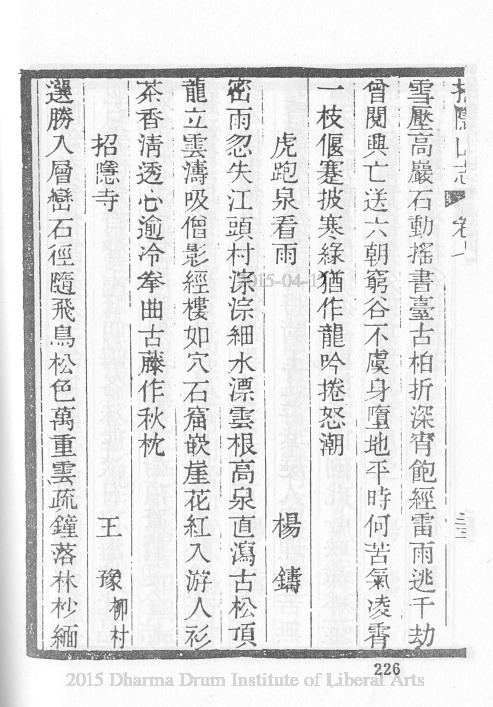 招隱山志 卷七
雪壓高巖石動搖書臺古柏折深宵飽經雷雨逃千劫
曾閱興亡送六朝窮谷不虞身墮地平時何苦氣凌霄
一枝偃蹇披寒綠猶作龍吟捲怒潮
虎跑泉看雨 楊鑄
密雨忽失江頭村淙淙細水漂雲根高泉直瀉古松頂
龍立雲濤吸僧影經樓如穴石窟嵌崖花紅入游人衫
茶香清透心逾冷拳曲古藤作秋枕
招隱寺 王豫柳村
選勝入層巒石徑隨飛鳥松色萬重雲疏鐘落林杪緬
226
2015 Dharma Drum Institute of Liberal Arts